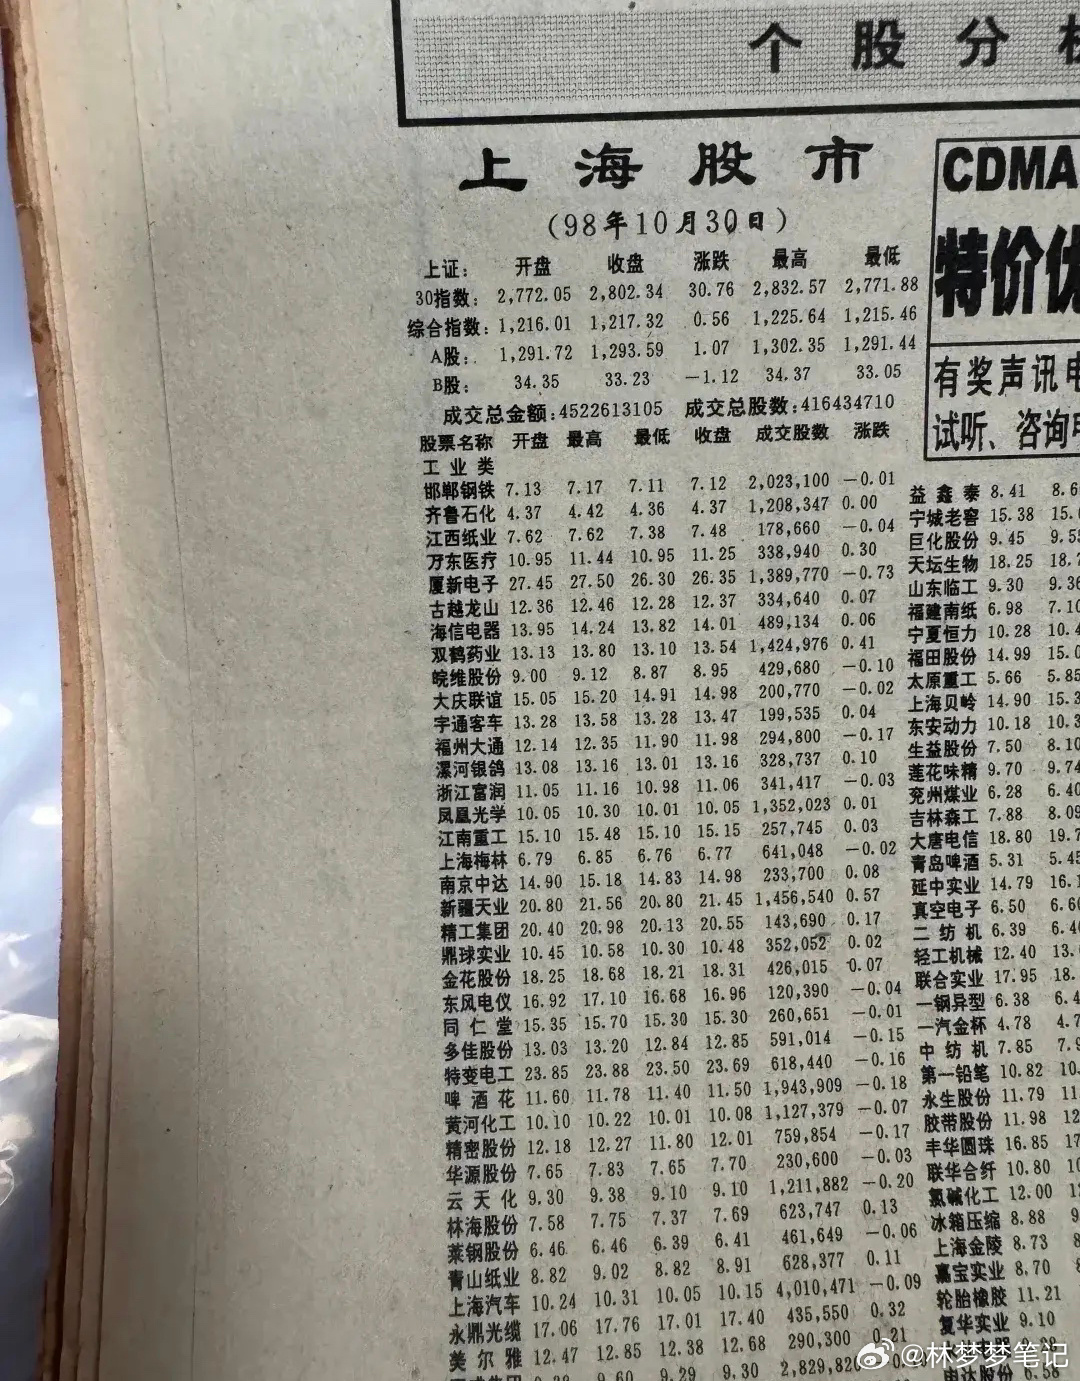 个股分
上海股市
(98年10月30日)
上证: 开盘 收盘 涨跌 最高 最低
30指数: 2,772.05 2,802.34 30.76 2,832.57 2,771.88
综合指数: 1,216.01 1,217.32 0.56 1,225.64 1,215.46
A股: 1,291.72 1,293.59 1.07 1,302.35 1,291.44
B股: 34.35 33.23 -1.12 34.37 33.05
成交总金额:4522613105 成交总股数:416434710
股票名称 开盘 最高 最低 收盘 成交股数 涨跌
工业类
邯郸钢铁 7.13 7.17 7.11 7.12 2,023,100 -0.01
齐鲁石化 4.37 4.42 4.36 4.37 1,208,347 0.00
江西纸业 7.62 7.62 7.38 7.48 178,660 -0.04
万东医疗 10.95 11.44 10.95 11.25 338,940 0.30
厦新电子 27.45 27.50 26.30 26.35 1,389,770 -0.73
古越龙山 12.36 12.46 12.28 12.37 334,640 0.07
海信电器 13.95 14.24 13.82 14.01 489,134 0.06
双鹤药业 13.13 13.80 13.10 13.54 1,424,976 0.41
皖维股份 9.00 9.12 8.87 8.95 429,680 -0.10
大庆联谊 15.05 15.20 14.91 14.98 200,770 -0.02
宇通客车 13.28 13.58 13.28 13.47 199,535 0.04
福州大通 12.14 12.35 11.90 11.98 294,800 -0.17
漯河银鸽 13.08 13.16 13.01 13.16 328,737 0.10
浙江富润 11.05 11.16 10.98 11.06 341,417 -0.03
凤凰光学 10.05 10.30 10.01 10.05 1,352,023 0.01
江南重工 15.10 15.48 15.10 15.15 257,745 0.03
上海梅林 6.79 6.85 6.76 6.77 641,048 -0.02
南京中达 14.90 15.18 14.83 14.98 233,700 0.08
新疆天业 20.80 21.56 20.80 21.45 1,456,540 0.57
精工集团 20.40 20.98 20.13 20.55 143,690 0.17
鼎球实业 10.45 10.58 10.30 10.48 352,052 0.02
金花股份 18.25 18.68 18.21 18.31 426,015 0.07
东风电仪 16.92 17.10 16.68 16.96 120,390 -0.04
同仁堂 15.35 15.70 15.30 15.30 260,651 -0.01
多佳股份 13.03 13.20 12.84 12.85 591,014 -0.15
特变电工 23.85 23.88 23.50 23.69 618,440 -0.16
啤酒花 11.60 11.78 11.40 11.50 1,943,909 -0.18
黄河化工 10.10 10.22 10.01 10.08 1,127,379 -0.07
精密股份 12.18 12.27 11.80 12.01 759,854 -0.17
华源股份 7.65 7.83 7.65 7.70 230,600 -0.03
云天化 9.30 9.38 9.10 9.10 1,211,882 -0.20
林海股份 7.58 7.75 7.37 7.69 623,747 0.13
莱钢股份 6.46 6.46 6.39 6.41 461,649 -0.06
青山纸业 8.82 9.02 8.82 8.91 628,377 0.11
上海汽车 10.24 10.31 10.05 10.15 4,010,471 -0.09
永鼎光缆 17.06 17.76 17.01 17.40 435,550 0.32
美尔雅 12.47 12.85 12.38 12.68 290,300 0.21
9.60 9.29 9.30
CDMA
特价优
有奖声讯电
试听、咨询电
益鑫泰 8.41 8.6
宁城老窖 15.38 15.
巨化股份 9.45 9.5
天坛生物 18.25 18.7
山东临工 9.30 9.36
福建南纸 6.98 7.10
宁夏恒力 10.28 10.4
福田股份 14.99 15.0
太原重工 5.66 5.85
上海贝岭 14.90 15.3
东安动力 10.18 10.3
生益股份 7.50 8.10
莲花味精 9.70 9.74
兖州煤业 6.28 6.40
吉林森工 7.88 8.09
大唐电信 18.80 19.7
青岛啤酒 5.31 5.45
延中实业 14.79 16.1
真空电子 6.50 6.60
二纺机 6.39 6.40
轻工机械 12.40 13.
联合实业 17.95 18.
一钢异型 6.38 6.4
一汽金杯 4.78 4.7
中纺机 7.85 7.9
第一铅笔 10.82 10.
永生股份 11.79 11
胶带股份 11.98 12
丰华圆珠 16.85 17
联华合纤 10.80 10
氯碱化工 12.00 1
冰箱压缩 8.88 9
上海金陵 8.73 8
嘉宝实业 8.70
轮胎橡胶 11.21
复华实业 9.10
申达股份 6.58
@林梦梦笔记